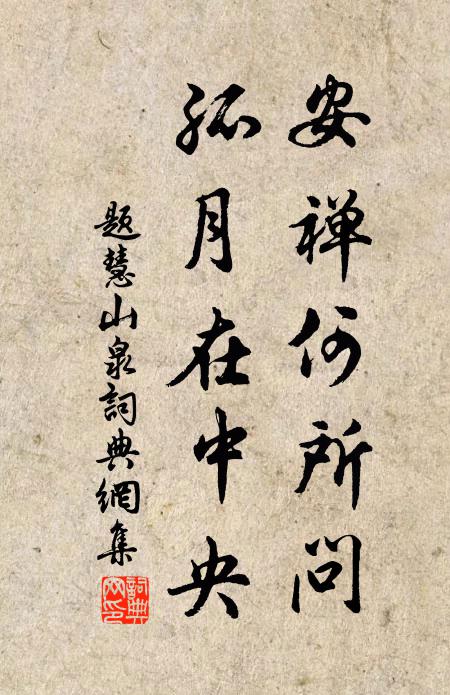 安禅何所问
孤月在中央
题慧山泉詞典網集
詞典